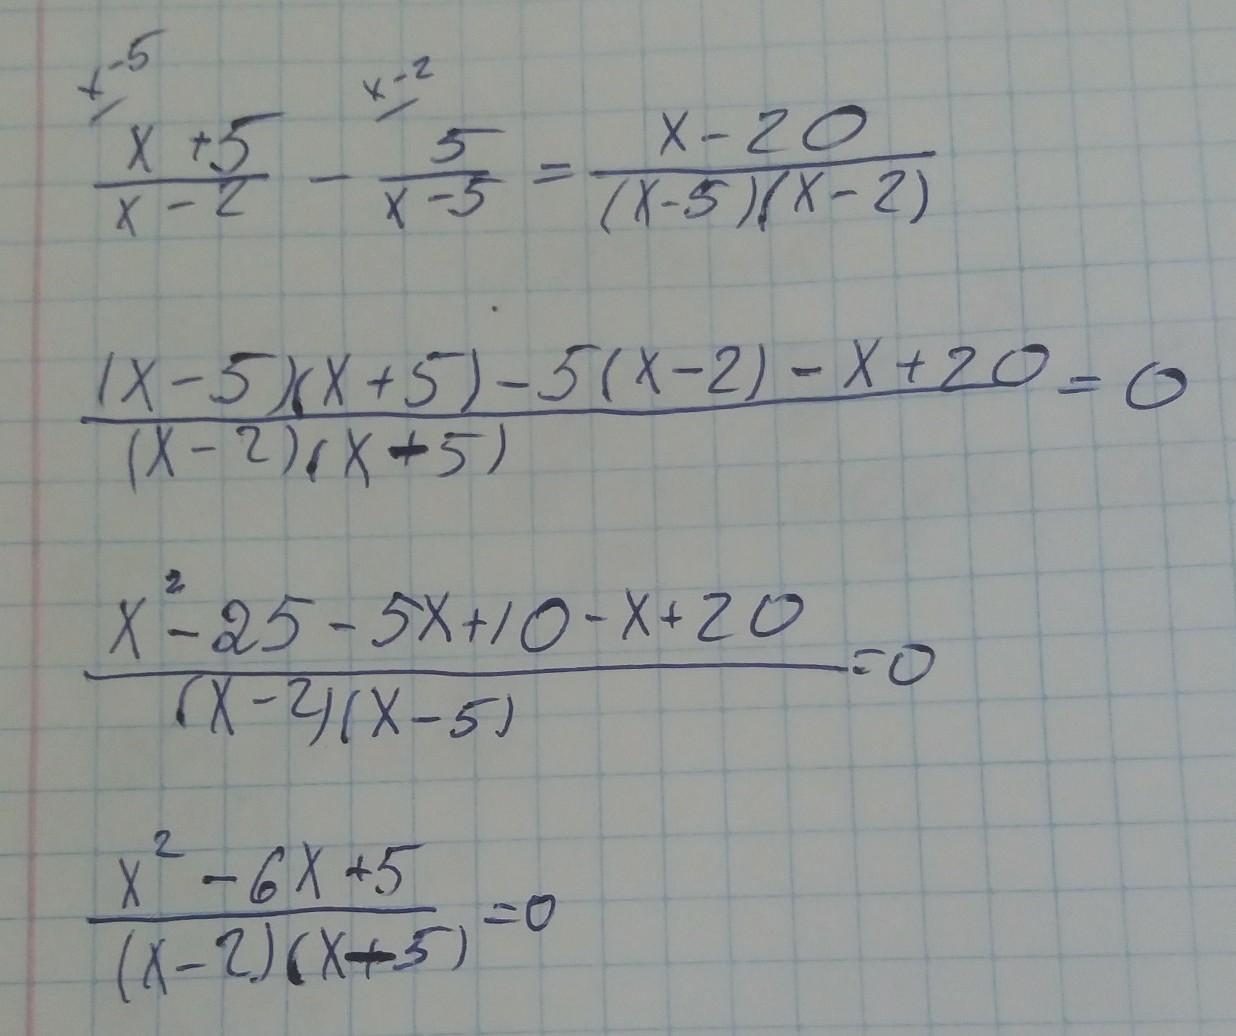 x-5 x-2
(x+5)/(x-2) - 5/(x-5) = (x-20)/((x-5)(x-2))
((x-5)(x+5)-5(x-2)-x+20)/((x-2)(x-5)) = 0
(x²-25-5x+10-x+20)/((x-2)(x-5)) =0
(x²-6x+5)/((x-2)(x-5)) =0